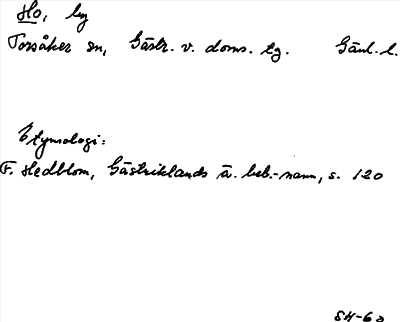 Ho, by
Torsåker sn, Gästr. v. doms. tg. Gävl. l.
Etymologi:
F. Hedblom, Gästriklands ä. beb.-namn, s. 120
SH-60